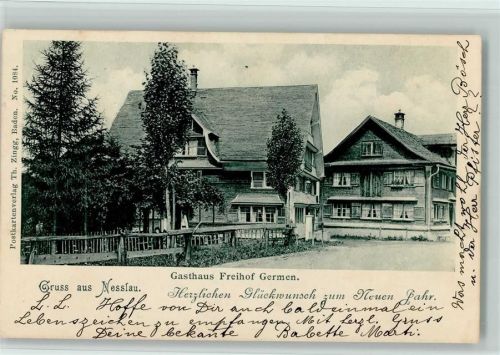 Postkartenverlag Th. Zingg, Baden. No. 1084.
Gasthaus Freihof Germen.
Gruss aus Nesslau.
Herzlichen Glückwunsch zum Neuen Jahr.
L. L. Hoffe von Dir auch bald einmal ein
Lebenszeichen zu empfangen Mit herzl. Gruss
Deine bekannte Babette Marti.
Was macht Herr Bösch
u. der Pfister?